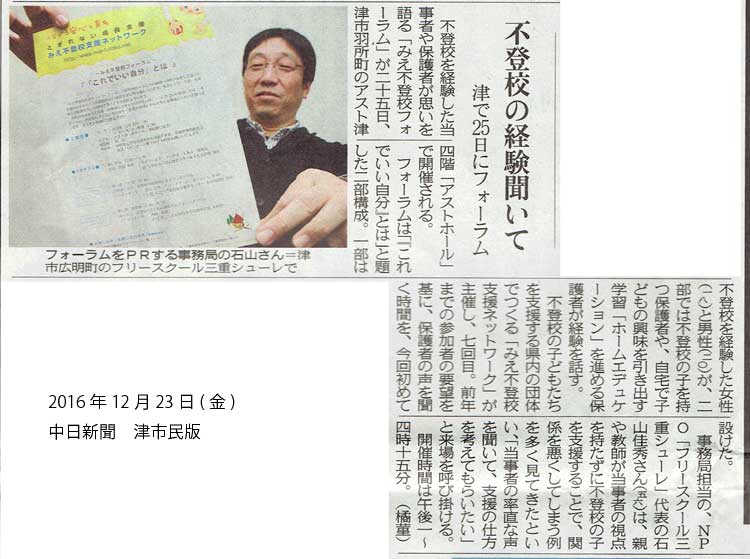 不登校の経験聞いて
津で25日にフォーラム
不登校を経験した当
事者や保護者が思いを
語る「みえ不登校フォ
ーラム」が二十五日、
津市羽所町のアスト津
四階「アストホール」
で開催される。
フォーラムは「『これ
でいい自分』とは」と題
した二部構成。一部は
こぎれない成長支援
みえ不登校支援ネットワーク
－みえ不登校フォーラム－
『「これでいい自分」とは』
フォーラムをPRする事務局の石山さん＝津
市広明町のフリースクール三重シューレで
不登校を経験した女性
(一八)と男性(二〇)が、二
部では不登校の子を持
つ保護者や、自宅で子
どもの興味を引き出す
学習「ホームエデュケ
ーション」を進める保
護者が経験を話す。
不登校の子どもたち
を支援する県内の団体
でつくる「みえ不登校
支援ネットワーク」が
主催し、七回目。前年
までの参加者の要望を
基に、保護者の声を聞
く時間を、今回初めて
設けた。
事務局担当の、NP
O「フリースクール三
重シューレ」代表の石
山佳秀さん(五六)は、親
や教師が当事者の視点
を持たずに不登校の子
を支援することで、関
係を悪くしてしまう例
を多く見てきたとい
い、「当事者の率直な声
を聞いて、支援の仕方
を考えてもらいたい」
と来場を呼び掛ける。
開催時間は午後一～
四時十五分。（橘菫）
2016年12月23日(金)
中日新聞　津市民版